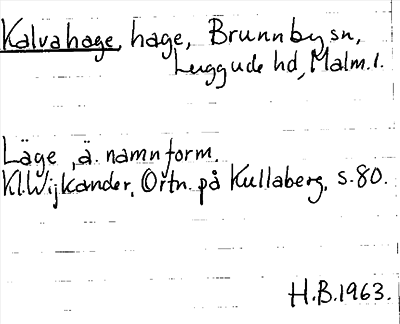 Kalvahage, hage, Brunnby sn,
Luggude hd, Malm. l.
Läge, ä. namnform.
Kl. Wijkander, Ortn. på Kullaberg, s. 80.
H.B. 1963.